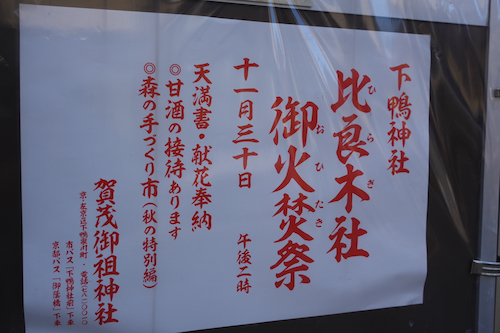 下鴨神社
比良木社
ひらぎ
御火焚祭
おひたき
十一月三十日
午後二時
天満書・献花奉納
◎甘酒の接待あります
◎森の手づくり市(秋の特別編)
賀茂御祖神社
京・左京区下鴨泉川町・電話七八一−〇〇一〇
市バス「下鴨神社前」下車
京都バス「御蔭橋」下車